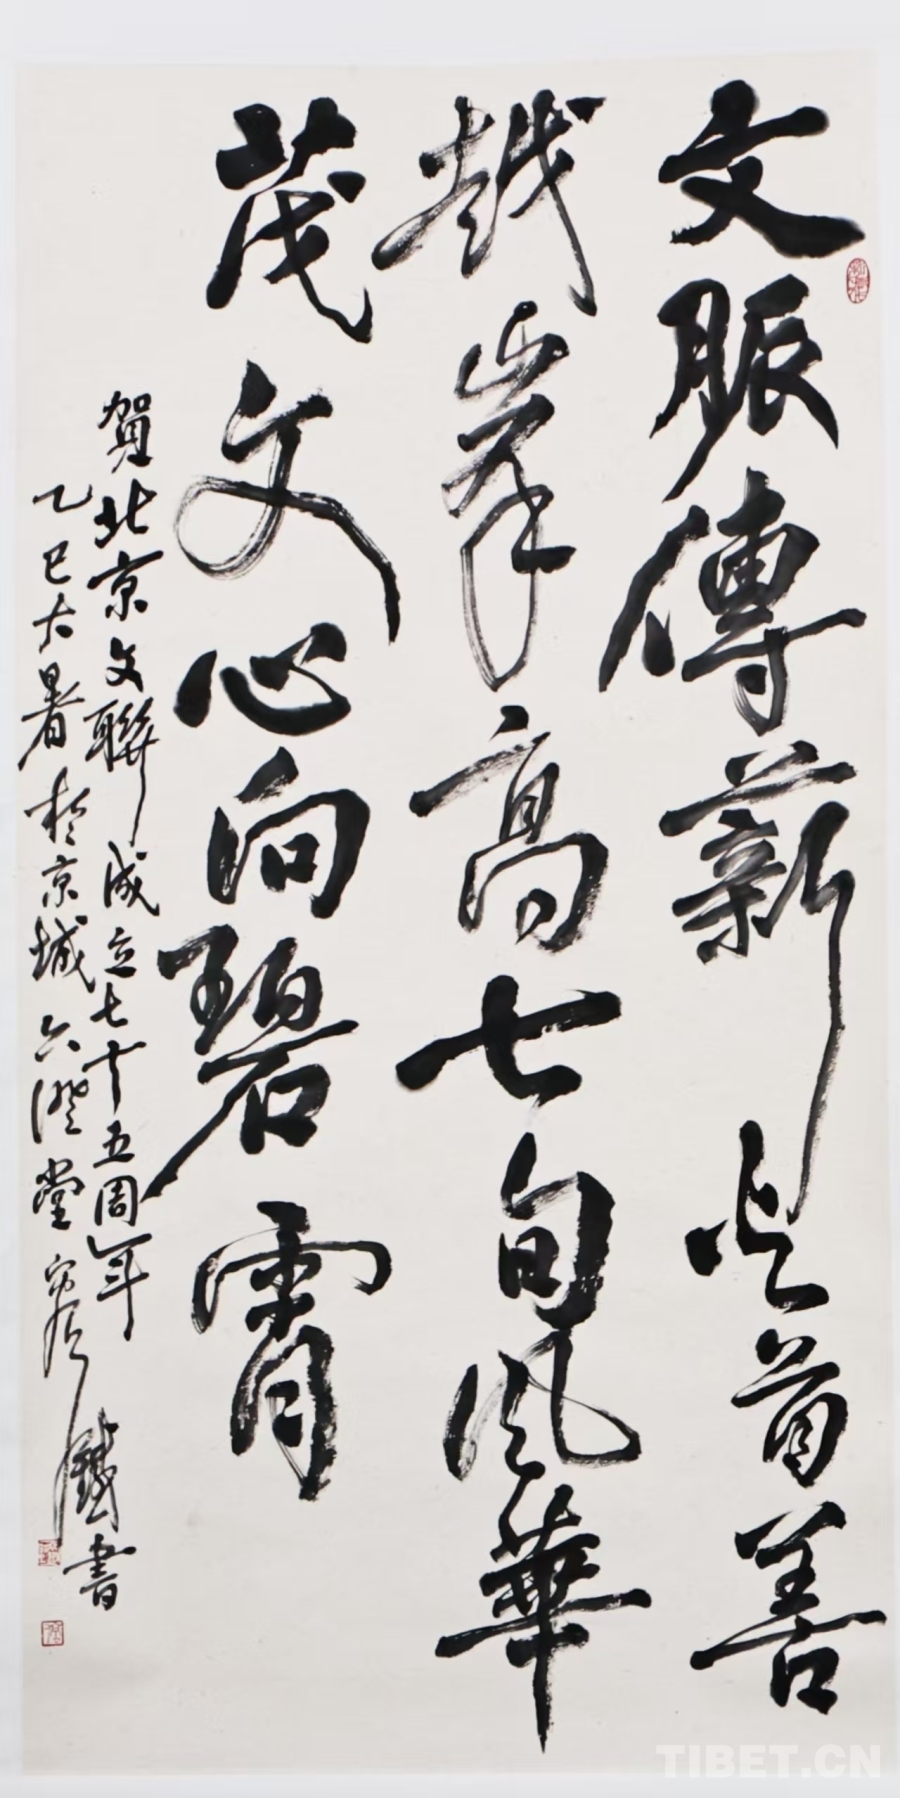 文脈傳薪火首善
藝峯高七旬風華
茂文心向碧霄
賀北京文聯成立七十五周年
乙巳大暑於京城六澄堂 鐵書
TIBET.CN